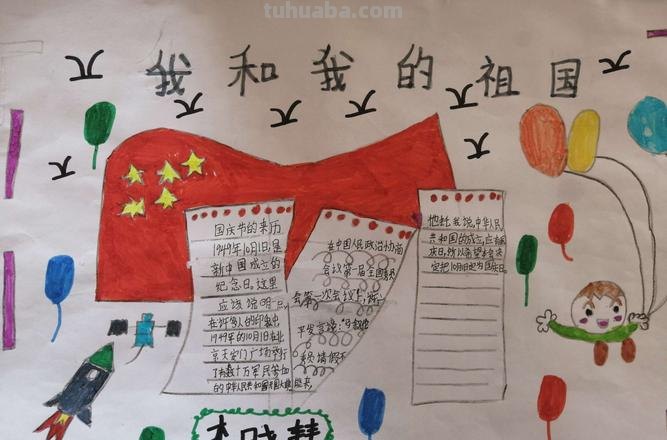 tuhuaba.com
我和我的祖国
国庆节的来历
1949年10月1日,是
新中国成立的
纪念日。这里
应该说明一
在许多人的印象中,
1949年的10月1日在北
京天安门广场举行
了有数十万军民参加
的中华人民共和国开国大典
在中国人民政治协商
会议第一届全国委员
会第一次会议上,
他托我说,中华人民
共和国的成立,应有国
庆日,所以希望本会决
定把10月1日定为国庆日。